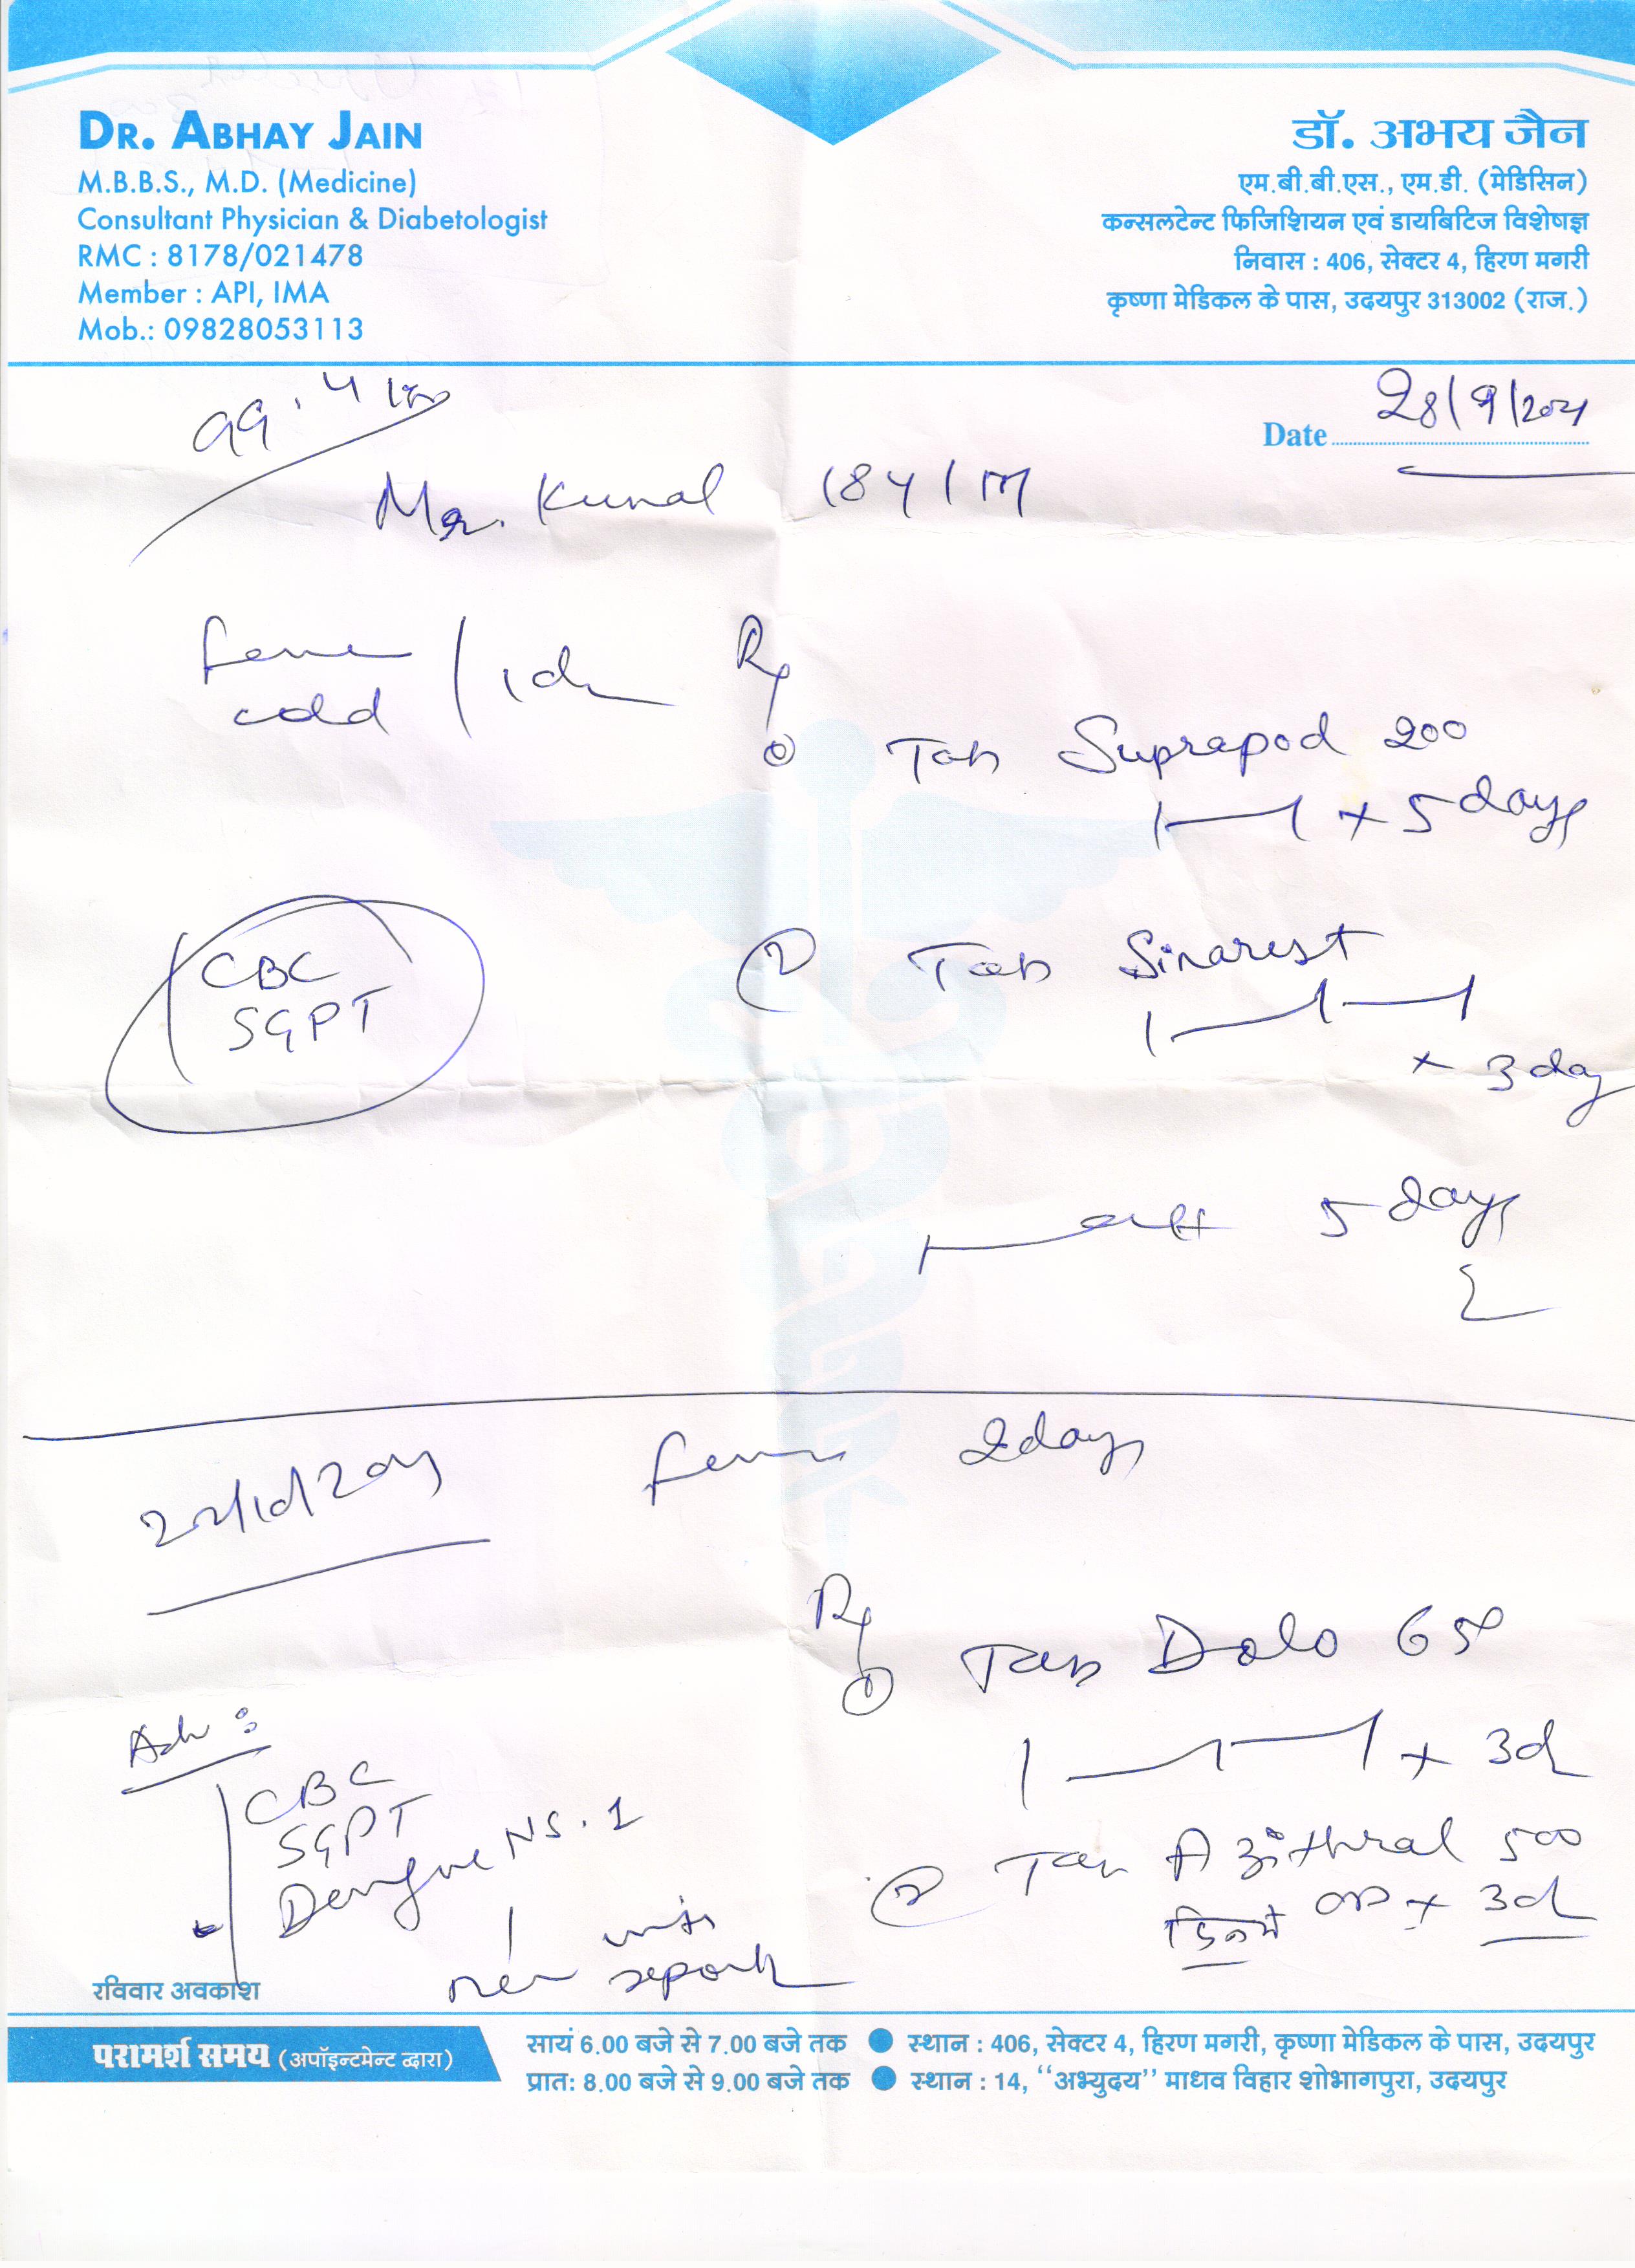 DR. ABHAY JAIN
M.B.B.S., M.D. (Medicine)
Consultant Physician & Diabetologist
RMC : 8178/021478
Member : API, IMA
Mob.: 09828053113
डॉ. अभय जैन
एम.बी.बी.एस., एम.डी. (मेडिसिन)
कन्सलटेन्ट फिजिशियन एवं डायबिटिज विशेषज्ञ
निवास : 406, सेक्टर 4, हिरण मगरी
कृष्णा मेडिकल के पास, उदयपुर 313002 (राज.)
99.4
Date 28/9/2021
Mr. Kunal 18y/M
fever
cold / 1d
Rx
① Tab Suprapod 200
1—1 x 5 days
CBC
SGPT
② Tab Sinarest
1—1—1
x 3 day
5 days
fever 2 days
Rx
① Tab Dolo 650
1—1—1 x 3d
Adv :
CBC
SGPT
Dengue NS.1
② Tab Azithral 500
OD x 3d
with
report
रविवार अवकाश
परामर्श समय (अपॉइन्टमेन्ट द्वारा)
सायं 6.00 बजे से 7.00 बजे तक ● स्थान : 406, सेक्टर 4, हिरण मगरी, कृष्णा मेडिकल के पास, उदयपुर
प्रात: 8.00 बजे से 9.00 बजे तक ● स्थान : 14, “अभ्युदय” माधव विहार शोभागपुरा, उदयपुर